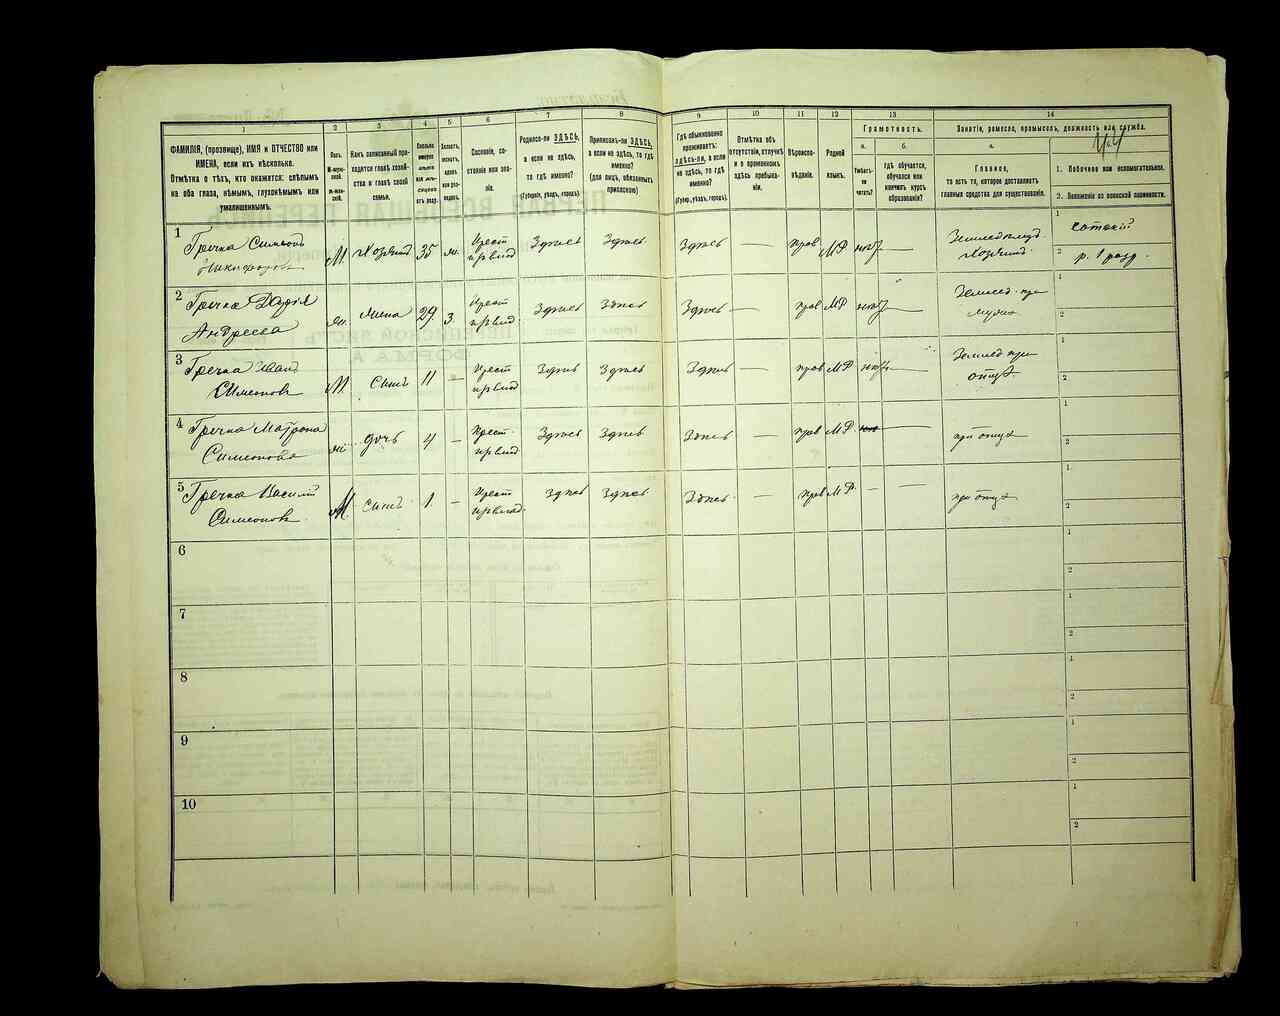 1
2
3
4
5
6
7
8
9
10
11
12
13
14
ФАМИЛІЯ, (прозвище), ИМЯ и ОТЧЕСТВО или
ИМЕНА, если ихъ нѣсколько.
Отмѣтка о тѣхъ, кто окажется: слѣпымъ
на оба глаза, нѣмымъ, глухонѣмымъ или
умалишеннымъ.
Полъ.
М-мужской.
Ж-женскій.
Какъ записанный приходится
главѣ хозяйства
и главѣ своей
семьи.
Сколько
минуло
лѣтъ
или мѣсяцевъ
отъ роду.
Холостъ,
женатъ,
вдовъ
или разведенъ.
Сословіе, состояніе
или званіе.
Родился-ли ЗДѢСЬ,
а если не здѣсь,
то гдѣ именно?
(Губернія, уѣздъ, городъ).
Приписанъ-ли ЗДѢСЬ,
а если не здѣсь, то гдѣ
именно?
(для лицъ, обязанныхъ
припискою)
Гдѣ обыкновенно
проживаетъ:
здѣсь-ли, а если
не здѣсь, то гдѣ
именно?
(Губер., уѣздъ, городъ).
Отмѣтка объ
отсутствіи, отлучкѣ
и о временномъ
здѣсь пребываніи.
Вѣроисповѣданіе.
Родной
языкъ.
Грамотность.
а.
Умѣетъ-ли
читать?
б.
гдѣ обучается,
обучался или
кончилъ курсъ
образованія?
Занятіе, ремесло, промыселъ, должность или служба.
а.
Главное,
то есть то, которое доставляетъ
главныя средства для существованія.
1. Побочное или вспомогательное.
2. Положеніе по воинской повинности.
1
Гречка Симеонъ
Никифоровъ
М. Хозяинъ 35 ж. Крест Здѣсь Здѣсь Здѣсь — прав МР нѣтъ
Хозяинъ
1
2
р. 1 разр.
2
Гречка Дарья
Андреева
жн. Жена 29 з. Крест Здѣсь Здѣсь Здѣсь — прав МР нѣтъ
1
2
3
Гречка Иванъ
Симеоновъ
М. Сынъ 11 — Крест Здѣсь Здѣсь Здѣсь — прав МР нѣтъ
1
2
4
Гречка Матрона
Симеонова
дочь 4 — Крест. Здѣсь Здѣсь Здѣсь — прав МР.
при отцѣ
1
2
5
Гречка Василій
Симеоновъ
М Сынъ 1 — Крест Здѣсь Здѣсь Здѣсь — прав МР. — —
при отцѣ
1
2
6
1
2
7
1
2
8
1
2
9
1
2
10
1
2